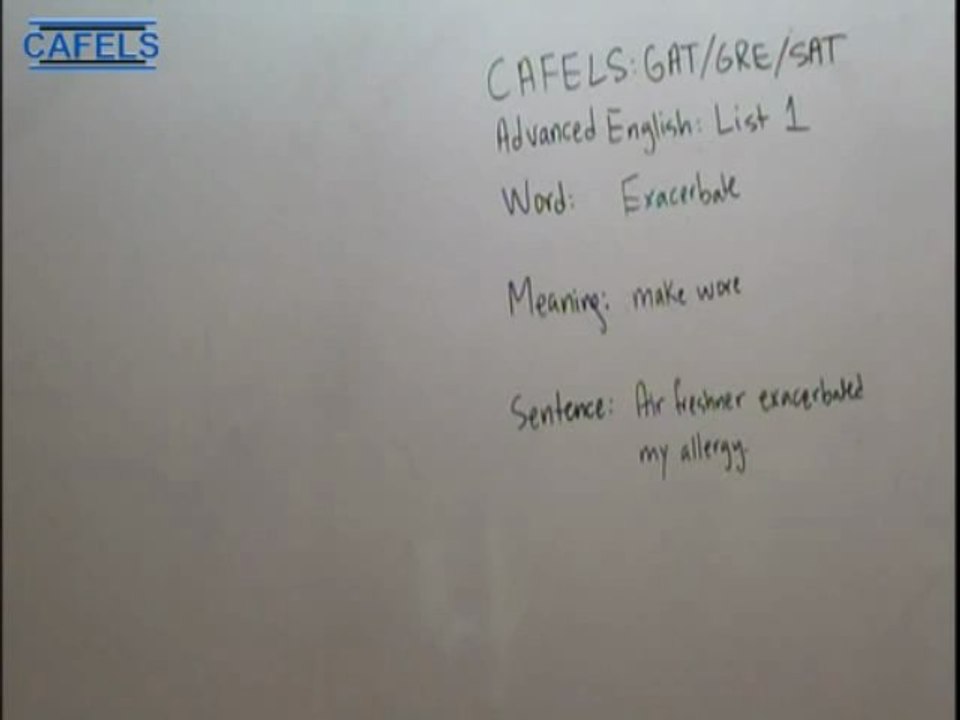 CAFELS
CAFELS: GAT/GRE/SAT
Advanced English: List 1
Word: Exacerbate
Meaning: make wore
Sentence: Air freshner exacerbated
my allergy.